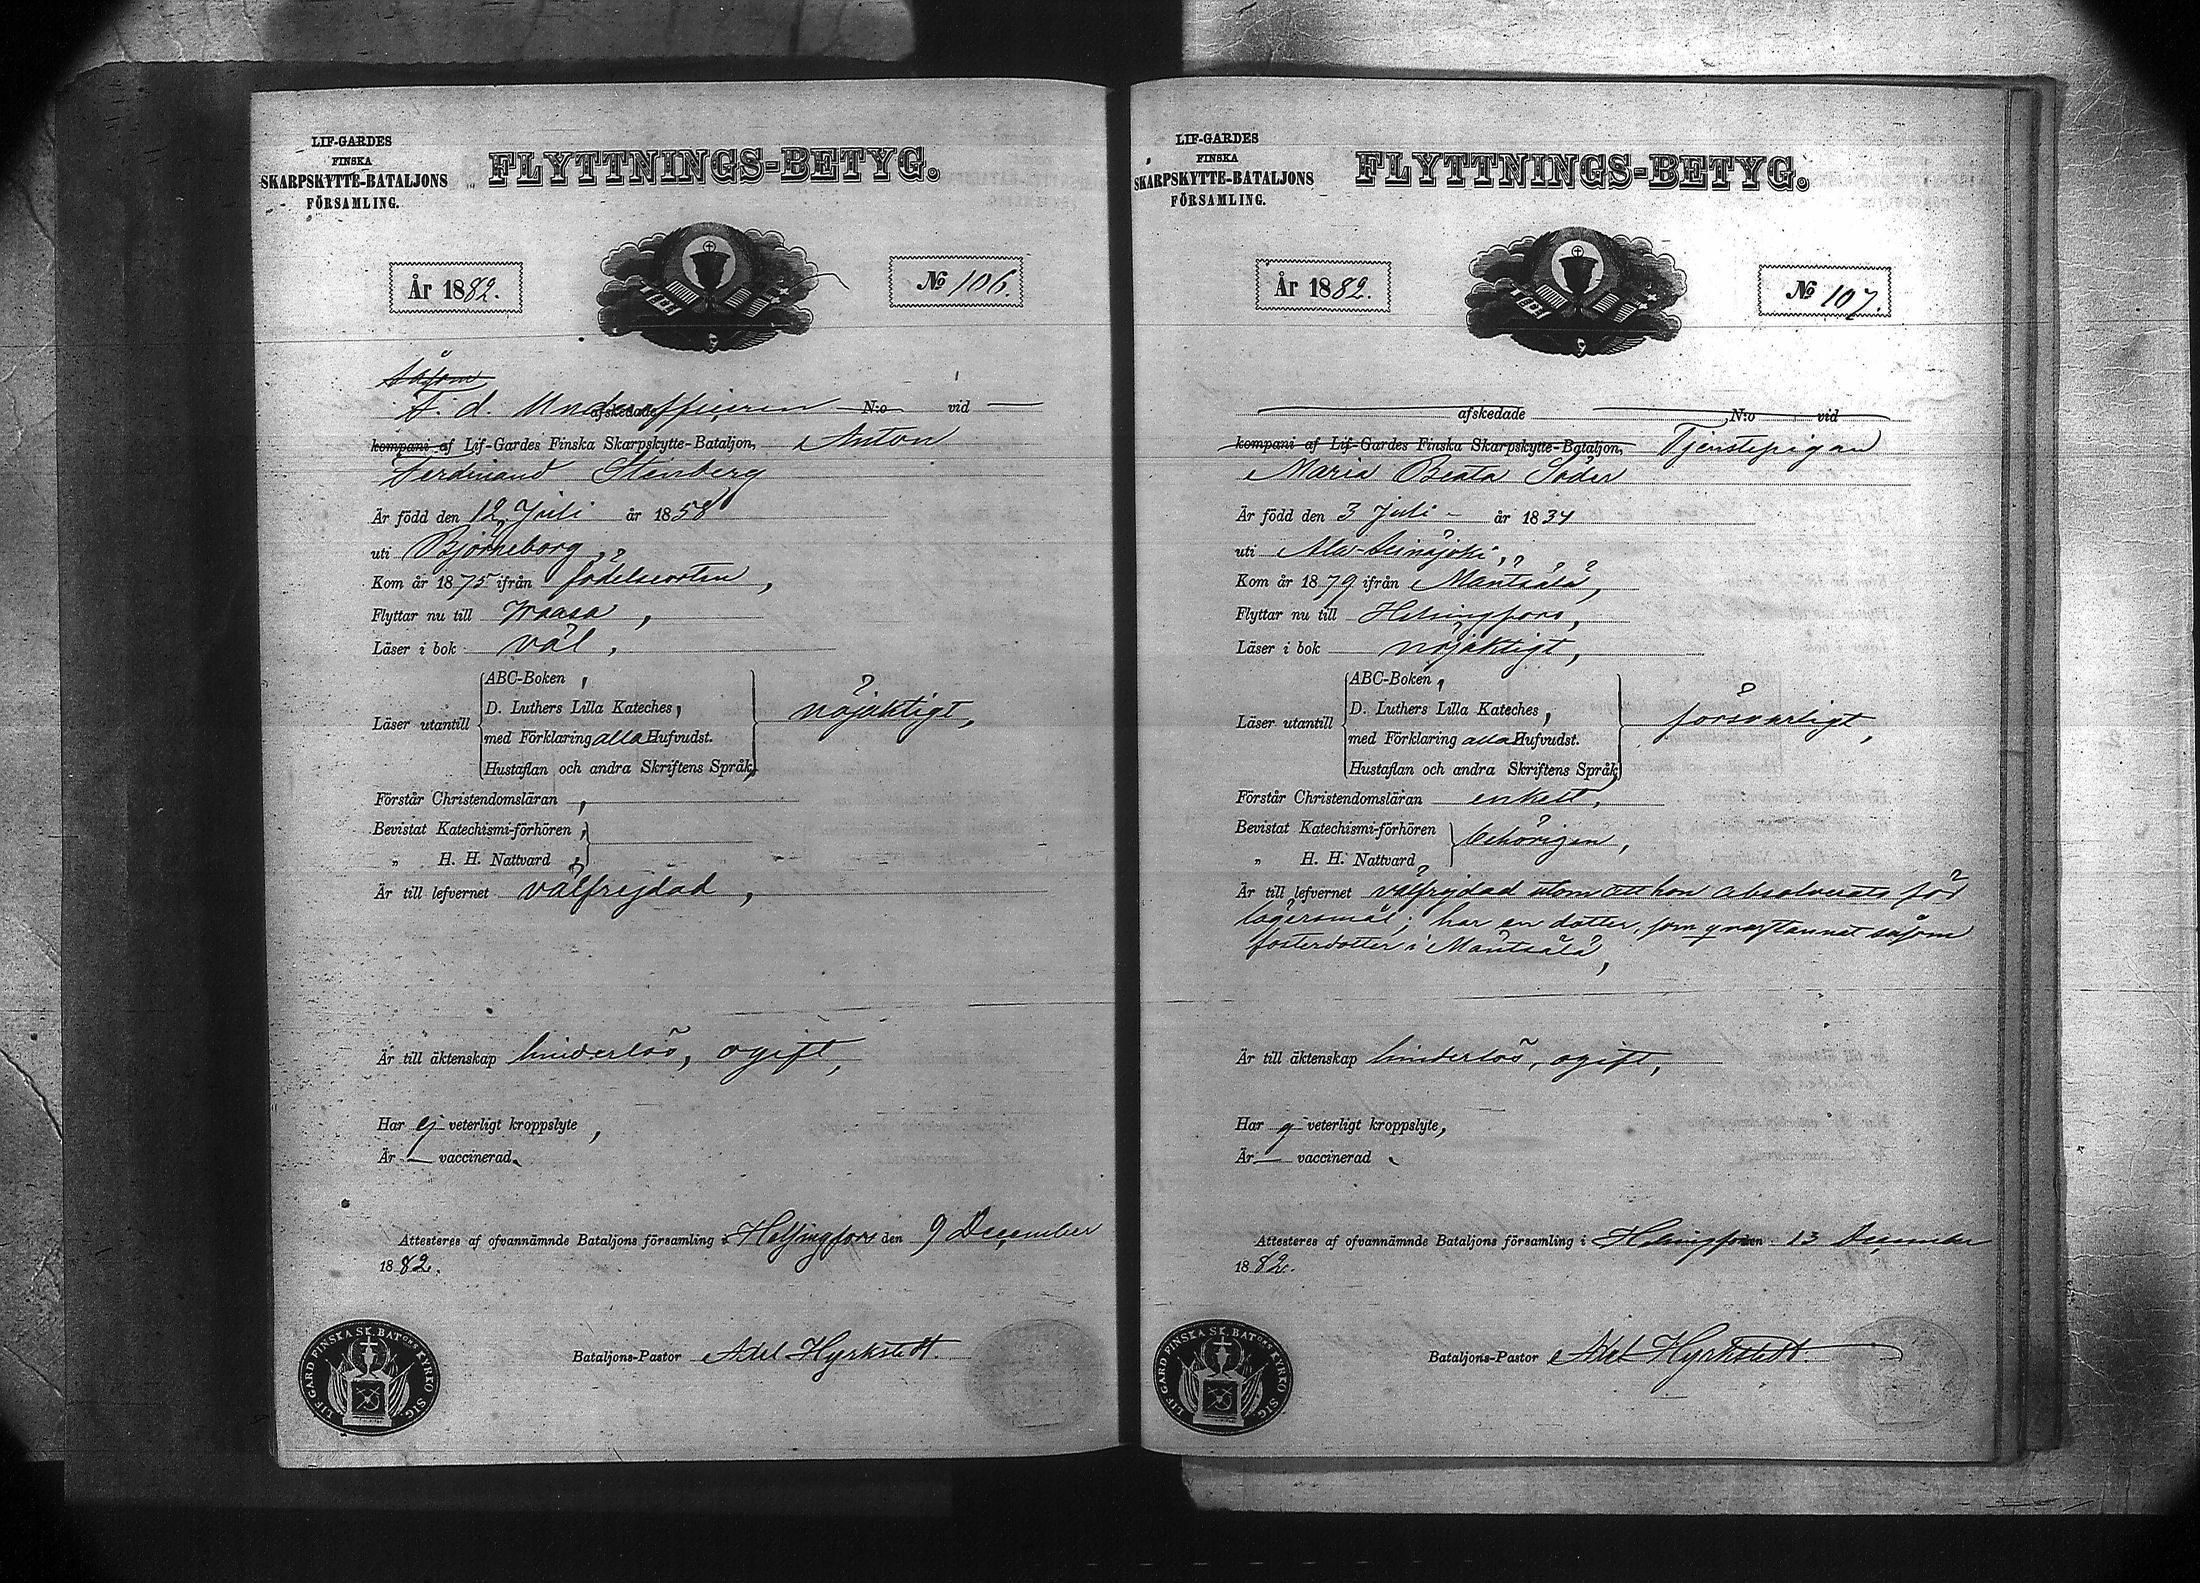 LIF-GARDES
FINSKA
SKARPSKYTTE-BATALJONS
FÖRSAMLING.
FLYTTNINGS-BETYG.
År 1882.
No 106.
Såsom
F. d. Underofficeren afskedade N:o vid
kompani af Lif-Gardes Finska Skarpskytte-Bataljon, Anton
Ferdinand Stenberg
Är född den 12 Juli år 1858
uti Björneborg,
Kom år 1875 ifrån födelseorten,
Flyttar nu till Waasa,
Läser i bok väl,
Läser utantill
ABC-Boken,
D. Luthers Lilla Kateches,
med Förklaring alla Hufvudst.
Hustaflan och andra Skriftens Språk,
nöjaktigt,
Förstår Christendomsläran,
Bevistat Katechismi-förhören,
„ H. H. Nattvard,
Är till lefvernet välfrejdad,
Är till äktenskap hinderlös, ogift,
Har ej veterligt kroppslyte,
Är — vaccinerad.
Attesteres af ofvannämnde Bataljons församling i Helsingfors den 9 December
1882.
Bataljons-Pastor Axel Hyrkstedt.
LIF GARD FINSKA SK. BATons KYRKO SIG.
LIF-GARDES
FINSKA
SKARPSKYTTE-BATALJONS
FÖRSAMLING.
FLYTTNINGS-BETYG.
År 1882.
No 107.
afskedade N:o vid
kompani af Lif-Gardes Finska Skarpskytte-Bataljon, Tjenstepigan
Maria Beata Söder
Är född den 3 Juli år 1834
uti Alavo-Seinäjoki,
Kom år 1879 ifrån Mäntsälä,
Flyttar nu till Helsingfors,
Läser i bok nöjaktigt,
Läser utantill
ABC-Boken,
D. Luthers Lilla Kateches,
med Förklaring alla Hufvudst.
Hustaflan och andra Skriftens Språk,
försvarligt,
Förstår Christendomsläran enkelt,
Bevistat Katechismi-förhören
„ H. H. Nattvard
behörigen,
Är till lefvernet välfrejdad utom att hon absolverats för
lägersmål; har en dotter, som qvarstannat såsom
fosterdotter i Mäntsälä,
Är till äktenskap hinderlös, ogift,
Har ej veterligt kroppslyte,
Är — vaccinerad.
Attesteres af ofvannämnde Bataljons församling i Helsingfors den 13 December
1882.
Bataljons-Pastor Axel Hyrkstedt.
LIF GARD FINSKA SK. BATons KYRKO SIG.